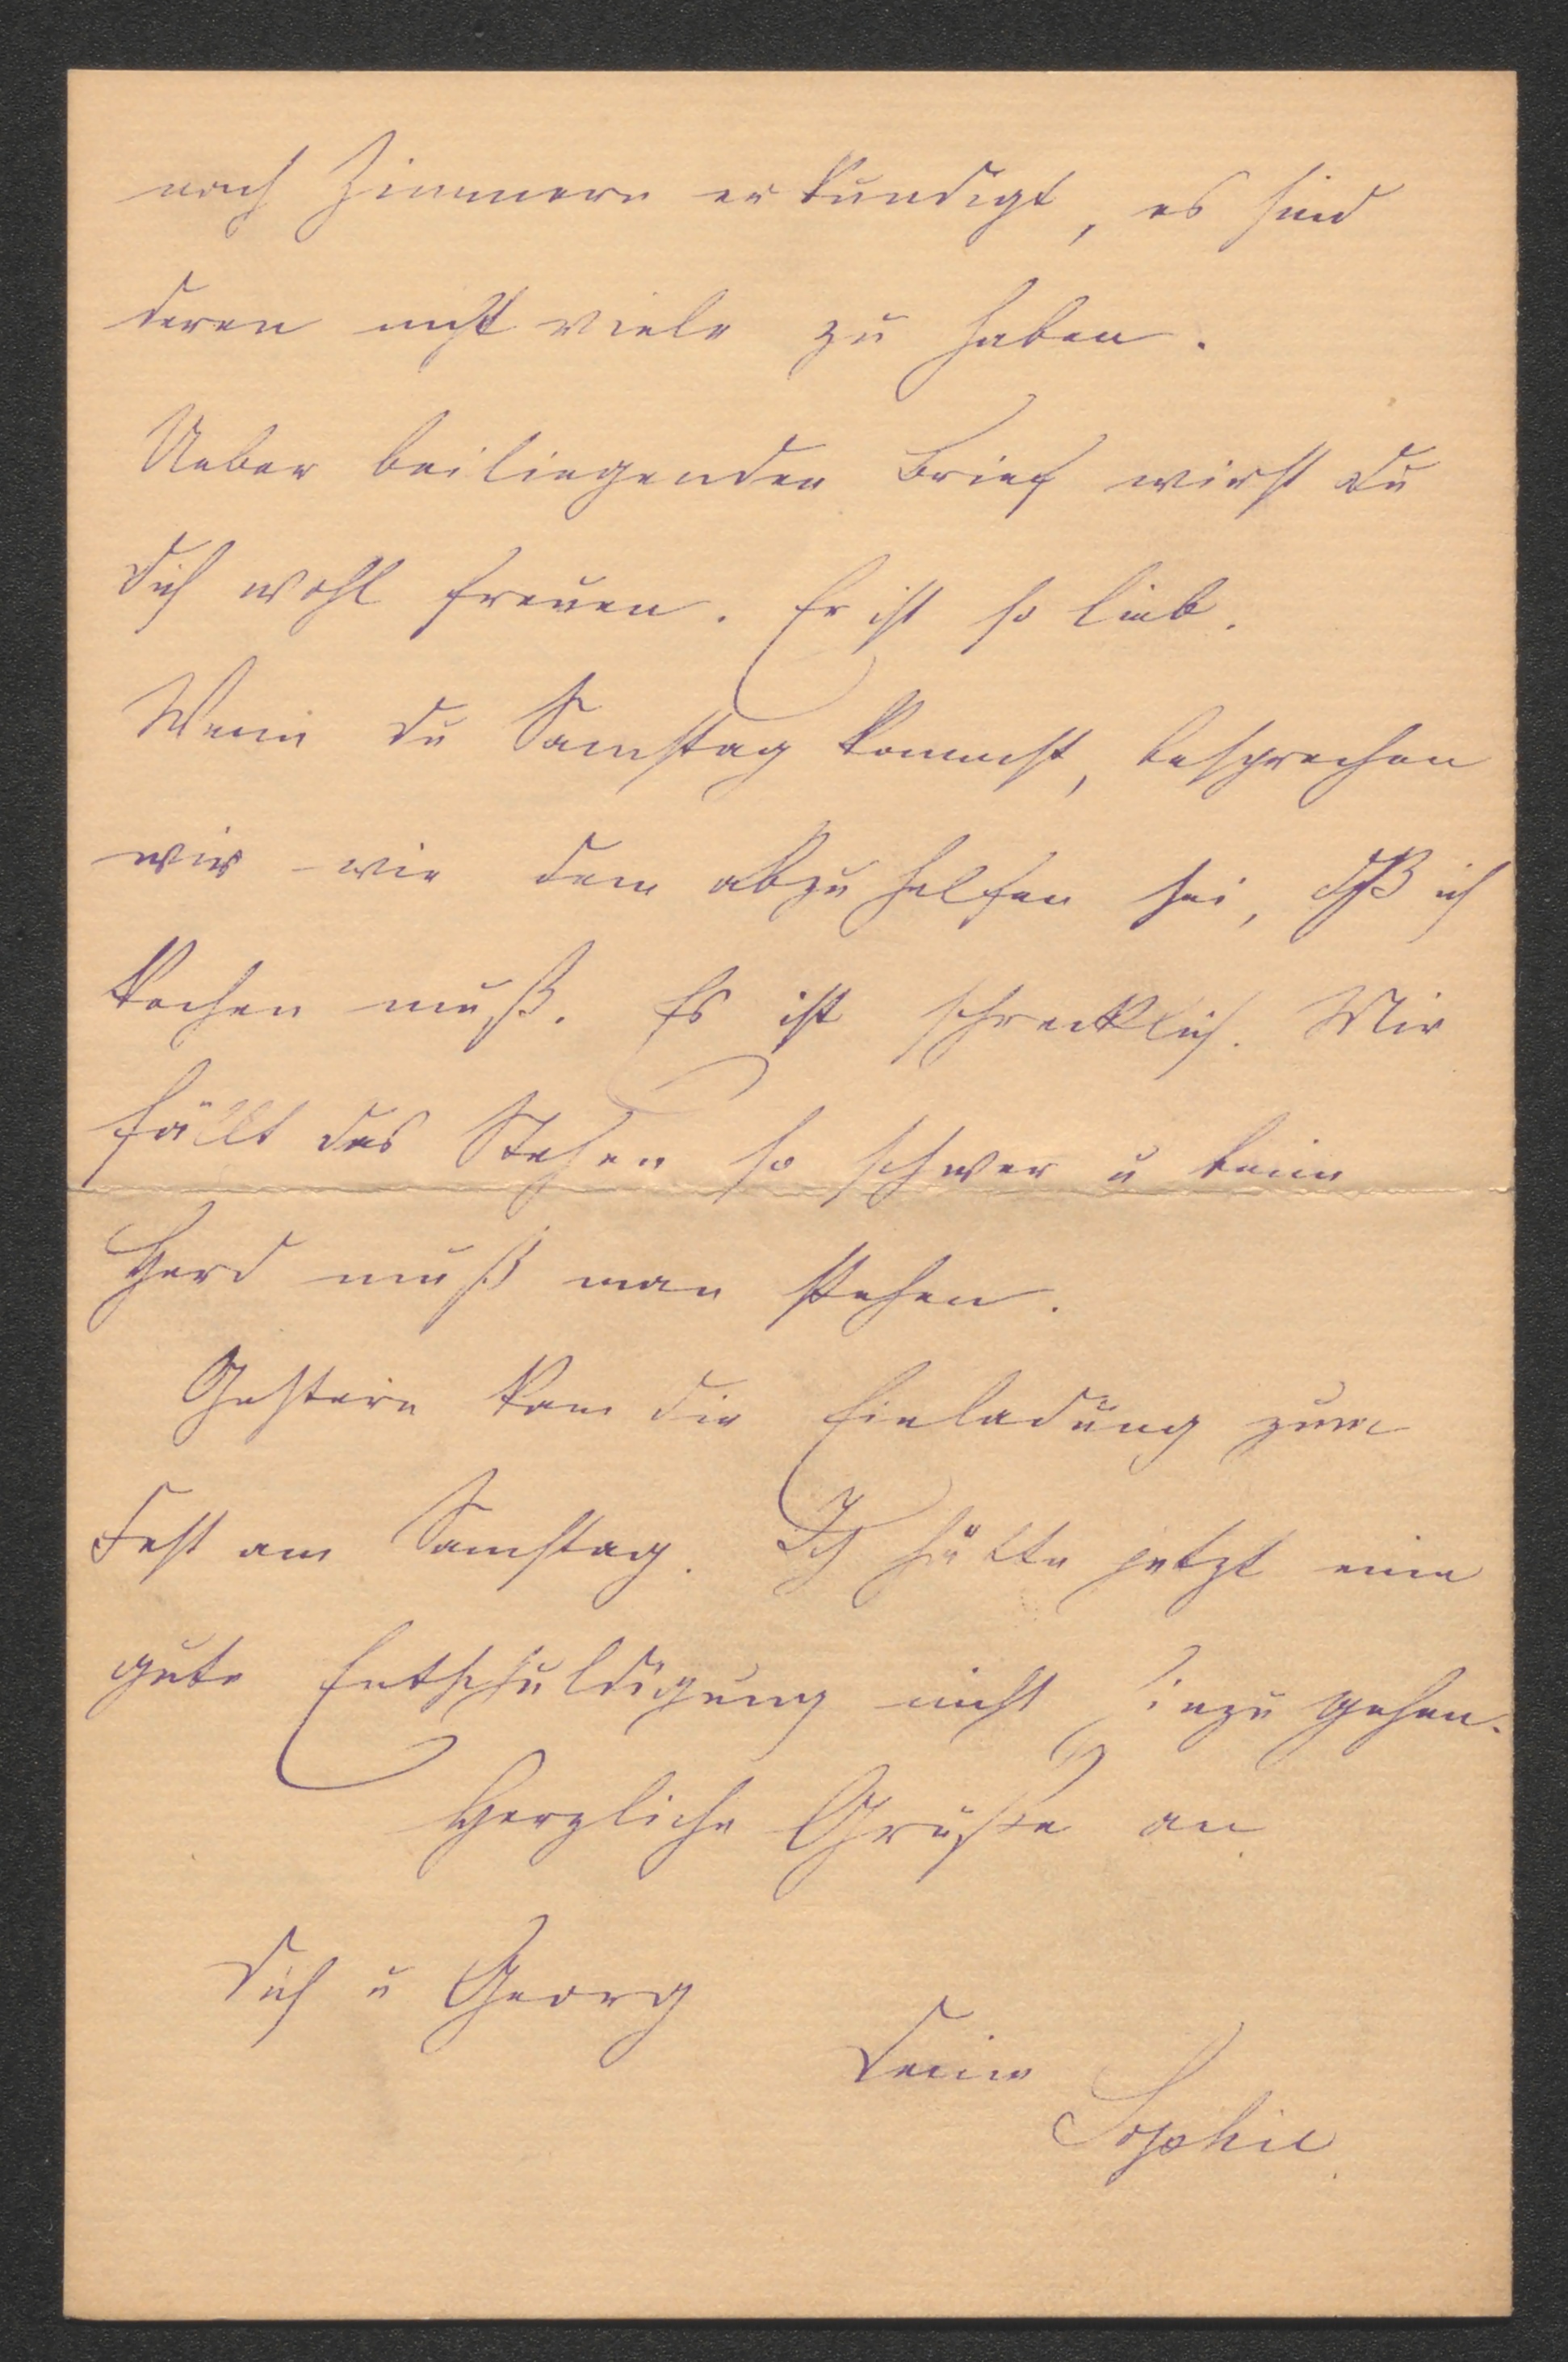 nach Zimmern erkundigt, es sind
deren nicht viele zu haben.
Ueber beiliegenden Brief wirst Du
Dich wohl freuen. Er ist so lieb.
Wenn Du Samstag kommst, besprechen
wir wie dem abzuhelfen sei, daß ich
kochen muß. Es ist schrecklich. Mir
fällt das Stehen so schwer u beim
Herd muß man stehen.
Gestern kam die Einladung zum
Fest am Samstag. Ich hätte jetzt eine
gute Entschuldigung nicht hinzugehen.
Herzliche Grüße an
Dich u Georg
Deine
Sophie.